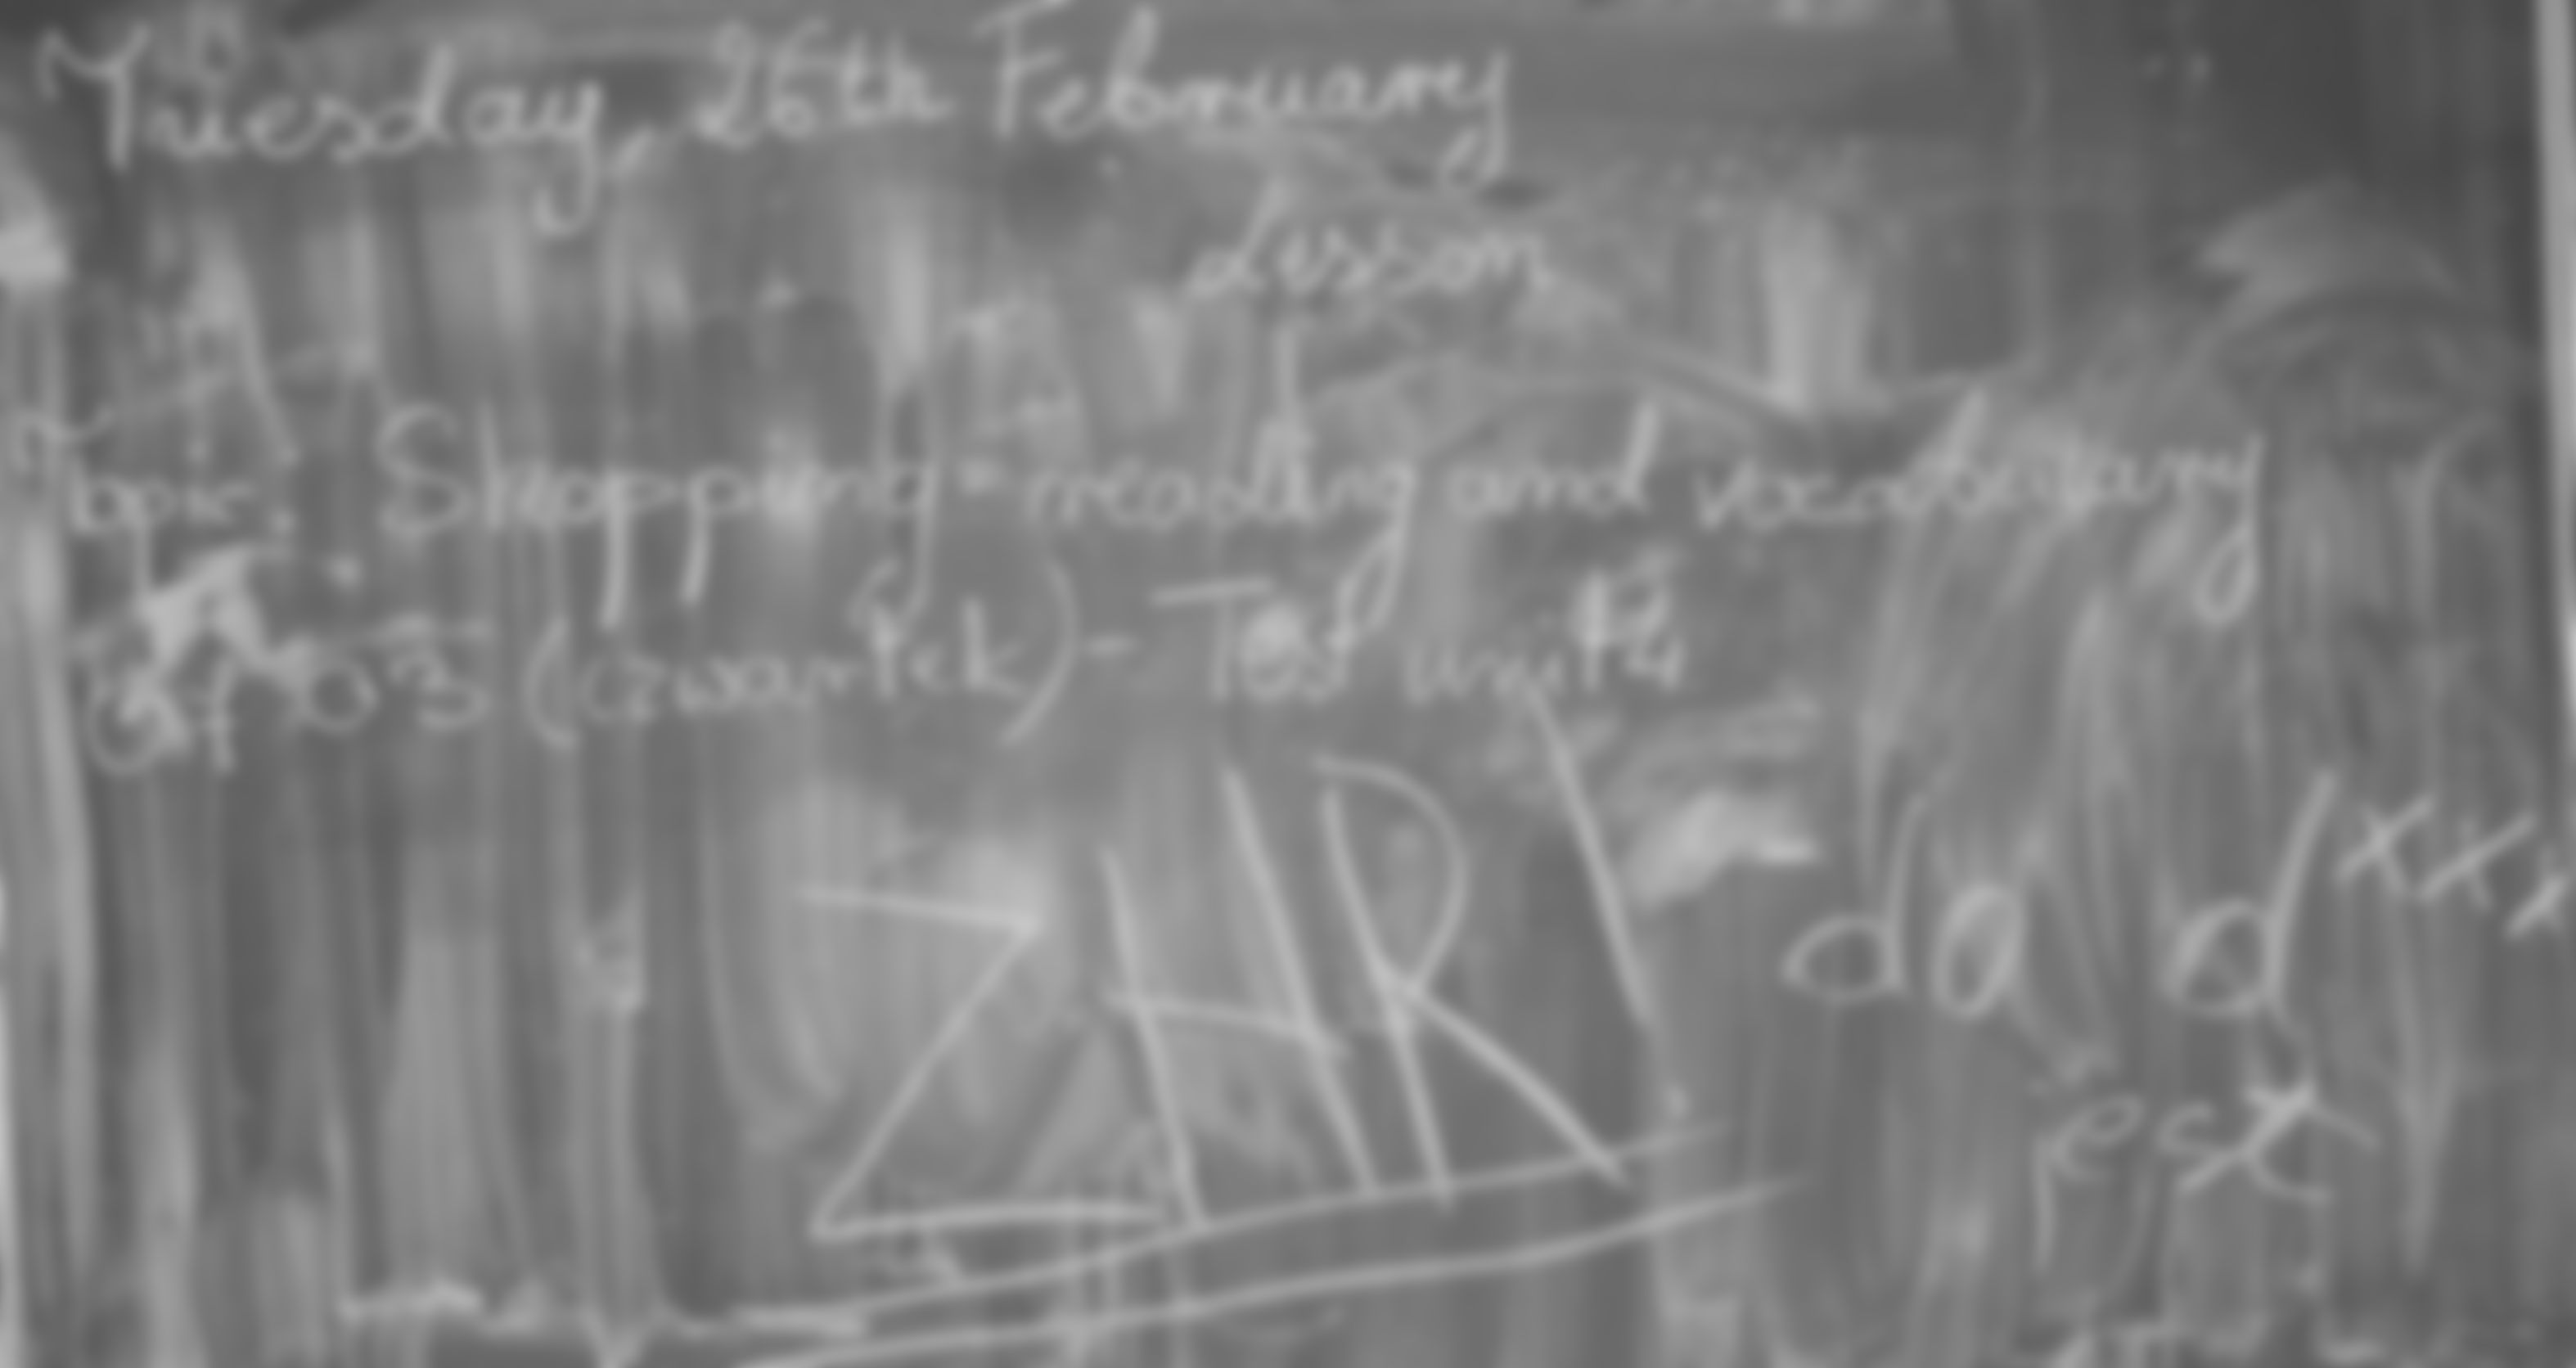 Tuesday, 26th February
Lesson
Topic: Shopping - reading and vocabulary
07.03 (czwartek) - Test unit 4
ZHR